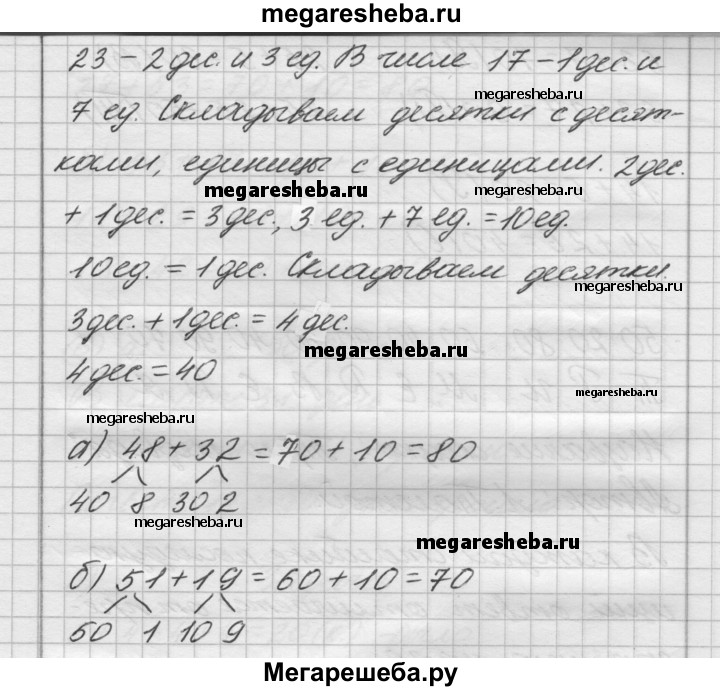 megaresheba.ru
23 – 2 дес. и 3 ед. В числе 17 – 1 дес. и
megaresheba.ru
7 ед. Складываем десятки с десят-
ками, единицы с единицами. 2 дес.
megaresheba.ru
megaresheba.ru
+ 1 дес. = 3 дес., 3 ед. + 7 ед. = 10 ед.
10 ед. = 1 дес. Складываем десятки.
megaresheba.ru
3 дес. + 1 дес. = 4 дес.
megaresheba.ru
4 дес. = 40
megaresheba.ru
а) 48 + 32 = 70 + 10 = 80
40 8 30 2
megaresheba.ru
megaresheba.ru
б) 51 + 19 = 60 + 10 = 70
megaresheba.ru
50 1 10 9
Мегарешеба.ру